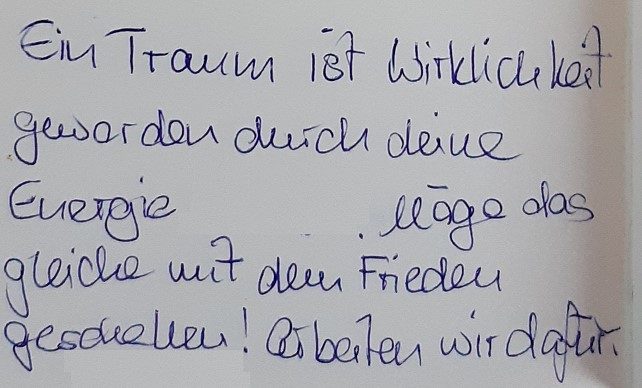 Ein Traum ist Wirklichkeit
geworden durch deine
Energie . Möge das
gleiche mit dem Frieden
geschehen! Arbeiten wir dafür.